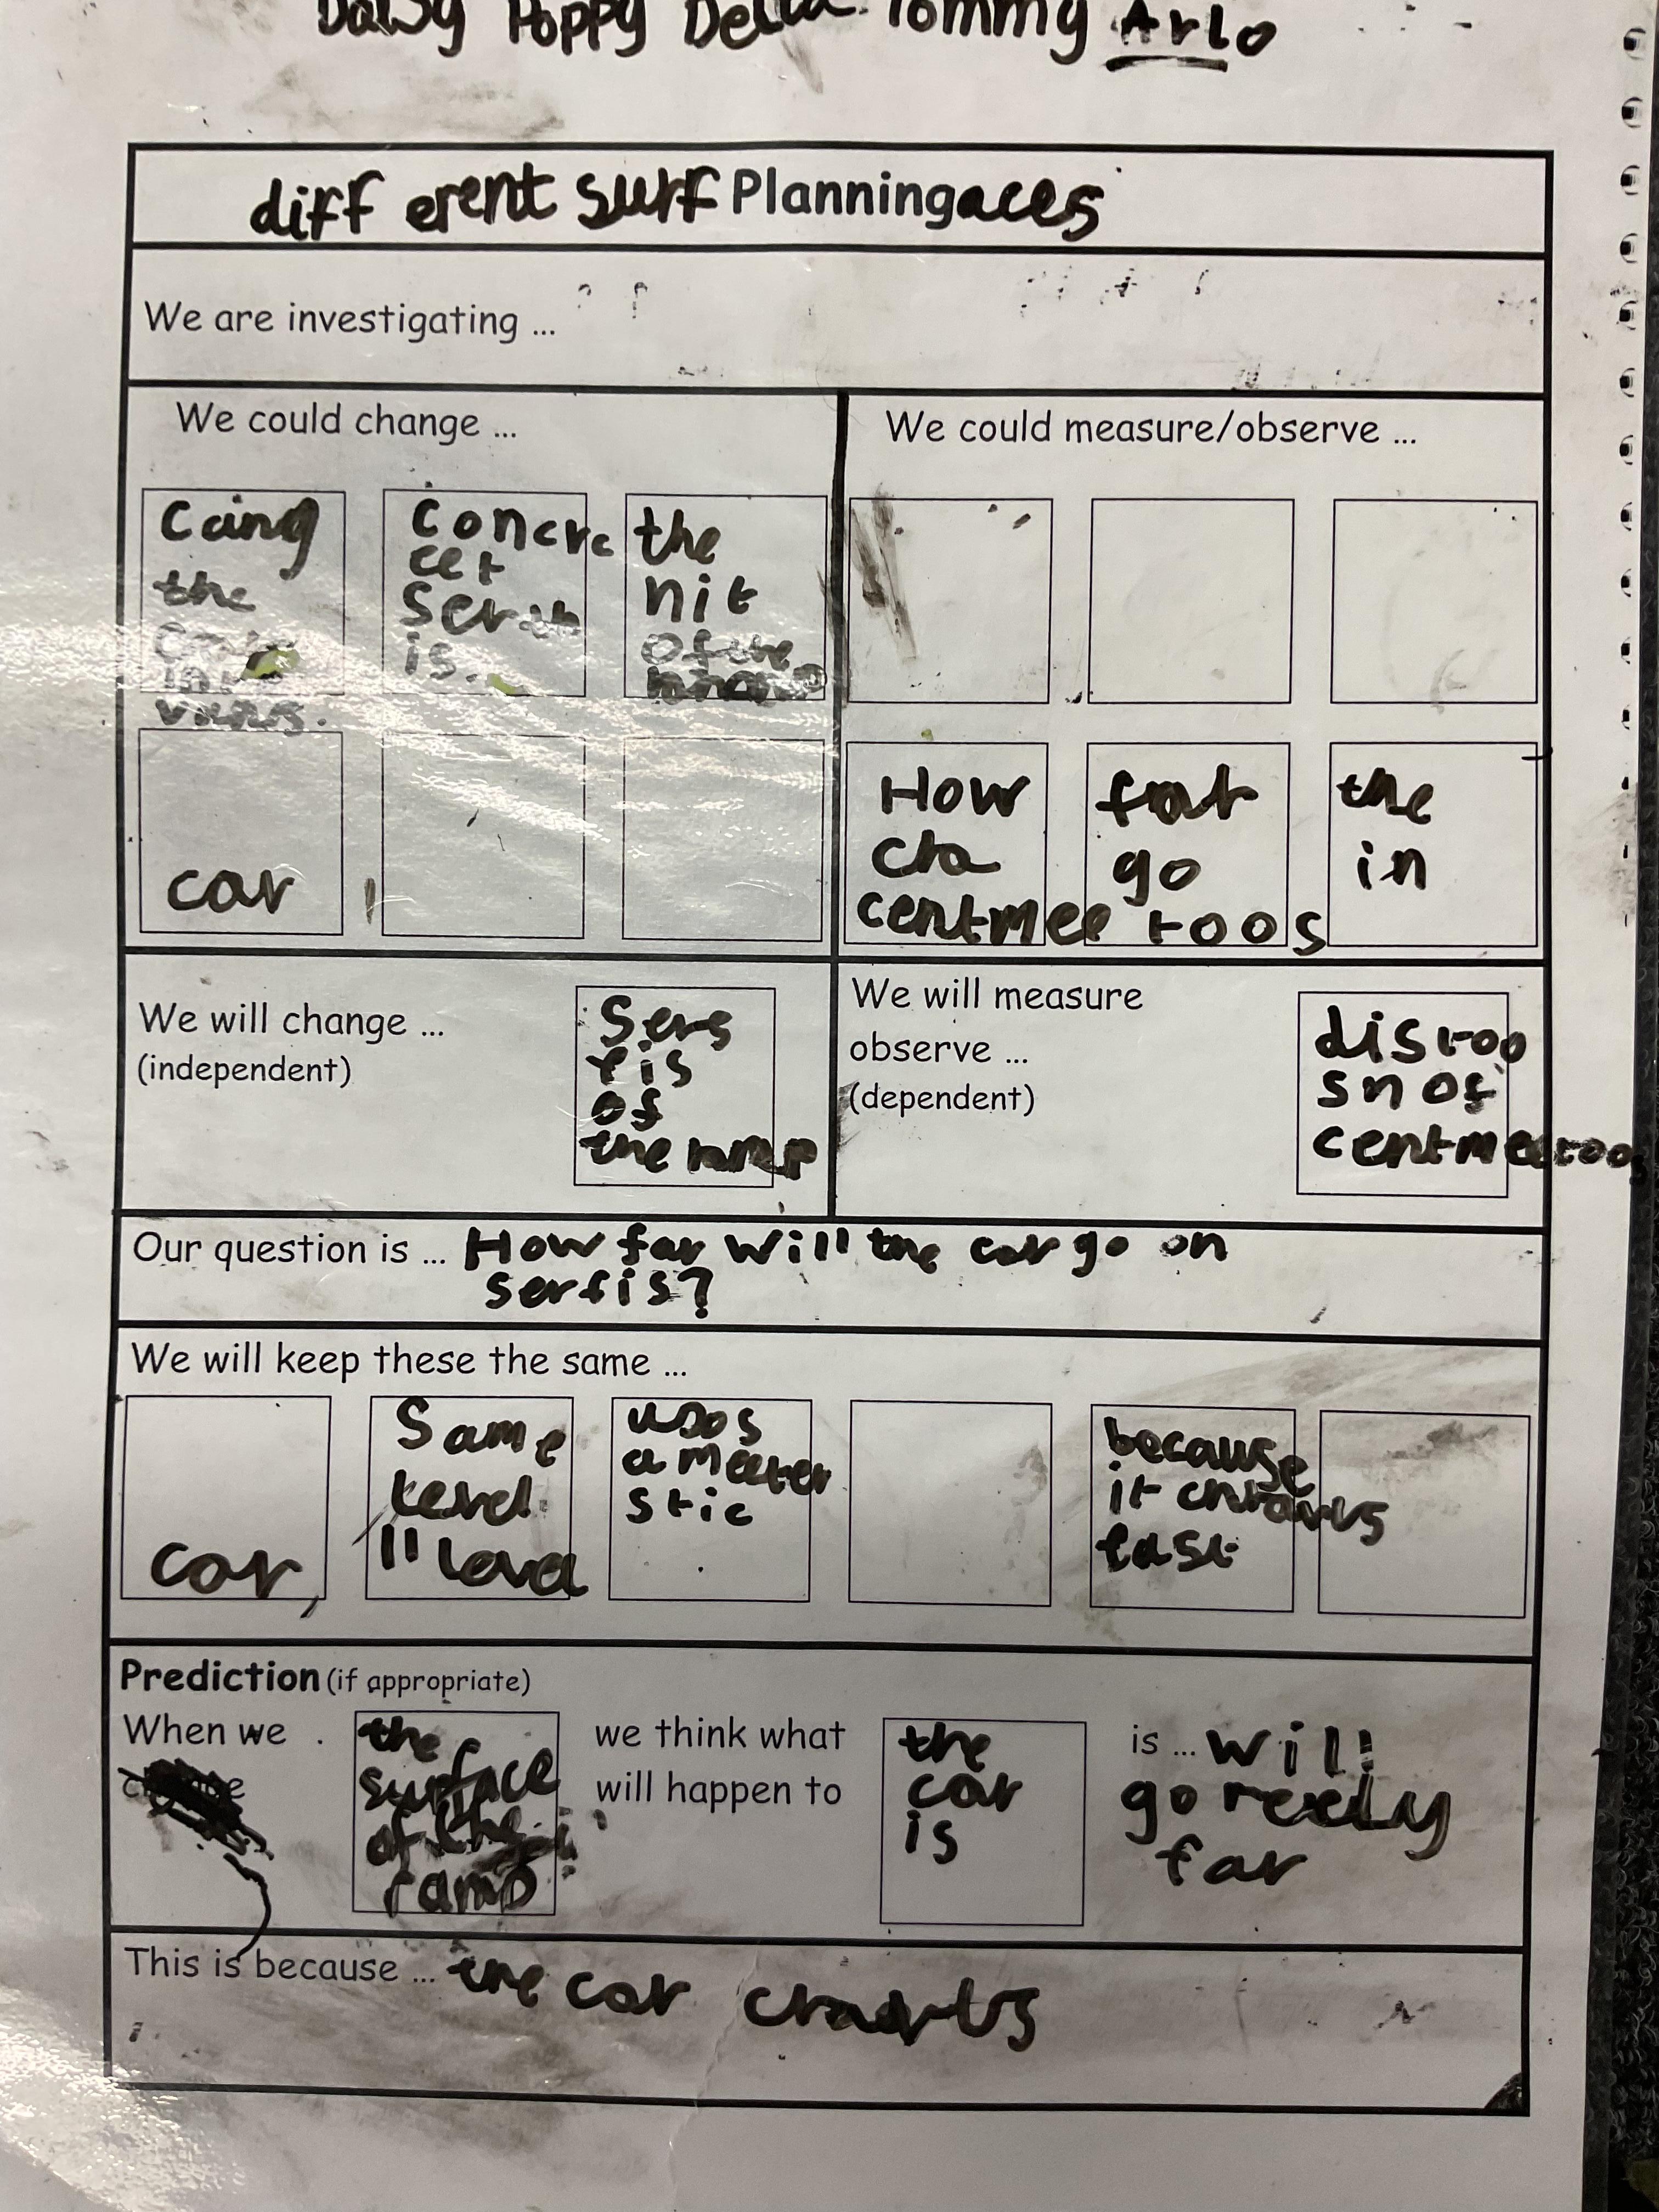 Daisy Poppy Della Tommy Arlo
diff erent surf Planning aces
We are investigating ...
We could change ...
We could measure/observe ...
cang
the
concre
eet
is.
the
hit
of the
car
How
far
the
go
in
centmee toos
We will change ...
(independent)
Sers
fis
of
the ramp
We will measure
observe ...
(dependent)
distoo
sn of
centmeetoos
Our question is ... How far will the car go on
serfis?
We will keep these the same ...
car
Same
level
11 level
usos
a meeter
stic
because
it
fast
Prediction (if appropriate)
When we
the
surface
of the
ramp
we think what
will happen to
the
car
is
is ... will
go reely
far
This is because ... the car